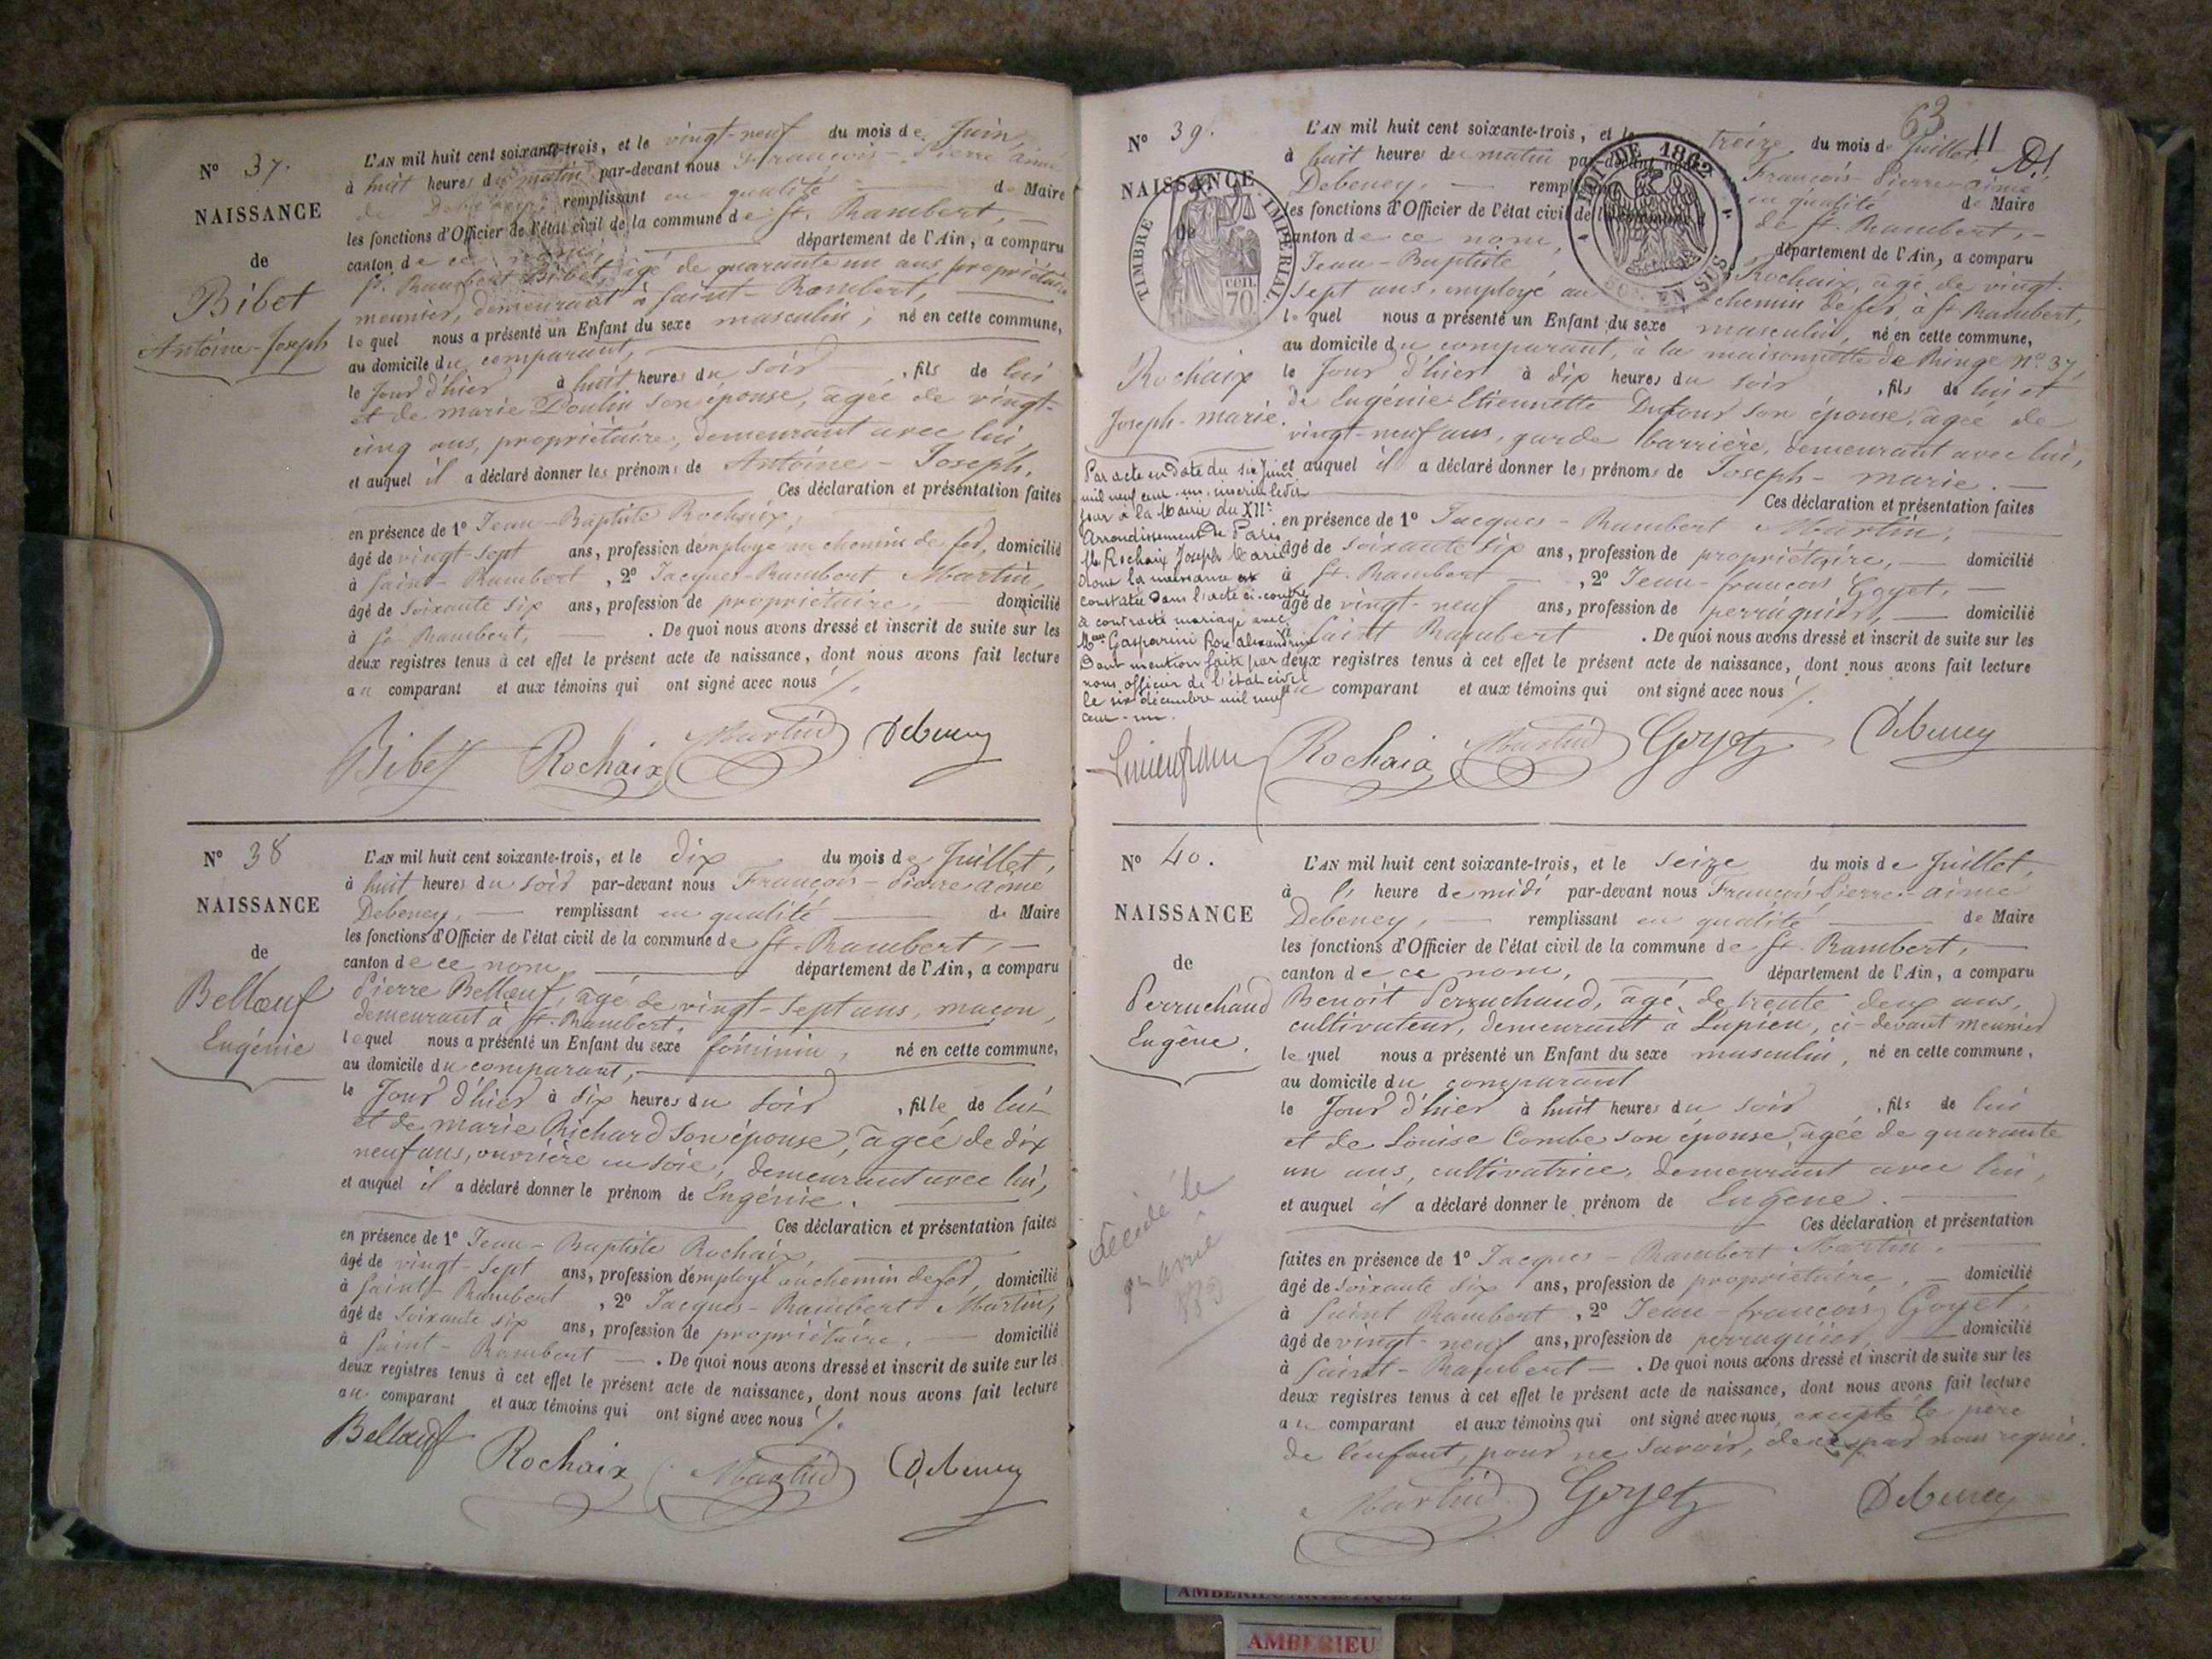 N° 37.
NAISSANCE
de
Bibet
Antoine-Joseph
L'AN mil huit cent soixante-trois, et le vingt-neuf du mois de Juin,
à huit heures du matin par-devant nous François-Pierre aimé
de Debeney, remplissant en qualité de Maire
les fonctions d'Officier de l'état civil de la commune de St. Rambert,
canton de ce nom, département de l'Ain, a comparu
St. Rambert Bibet, âgé de quarante un ans, propriétaire
meunier, demeurant à Saint-Rambert,
lequel nous a présenté un Enfant du sexe masculin, né en cette commune,
au domicile du comparant,
le Jour d'hier à huit heures du soir, fils de lui
et de marie Doulin son épouse, âgée de vingt-
cinq ans, propriétaire, demeurant avec lui,
et auquel il a déclaré donner les prénoms de Antoine-Joseph.
Ces déclaration et présentation faites
en présence de 1° Jean-Baptiste Rochaix,
âgé de vingt-sept ans, profession d'employé au chemin de fer, domicilié
à Saint-Rambert, 2° Jacques-Rambert Martin,
âgé de soixante six ans, profession de propriétaire, domicilié
à St Rambert, . De quoi nous avons dressé et inscrit de suite sur les
deux registres tenus à cet effet le présent acte de naissance, dont nous avons fait lecture
au comparant et aux témoins qui ont signé avec nous /.
Bibet Rochaix Martin Debeney
N° 38
NAISSANCE
de
Bellœuf
Eugénie
L'AN mil huit cent soixante-trois, et le dix du mois de Juillet,
à huit heures du soir par-devant nous François-Pierre aimé
Debeney, remplissant en qualité de Maire
les fonctions d'Officier de l'état civil de la commune de St. Rambert,
canton de ce nom, département de l'Ain, a comparu
Pierre Bellœuf, âgé de vingt-sept ans, maçon,
demeurant à St. Rambert,
lequel nous a présenté un Enfant du sexe féminin, né en cette commune,
au domicile du comparant,
le Jour d'hier à six heures du soir, fille de lui
et de marie Richard son épouse, âgée de dix
neuf ans, ouvrière en soie, demeurant avec lui,
et auquel il a déclaré donner le prénom de Eugénie.
Ces déclaration et présentation faites
en présence de 1° Jean-Baptiste Rochaix,
âgé de vingt-sept ans, profession d'employé au chemin de fer, domicilié
à Saint-Rambert, 2° Jacques-Rambert Martin,
âgé de soixante six ans, profession de propriétaire, domicilié
à Saint-Rambert . De quoi nous avons dressé et inscrit de suite sur les
deux registres tenus à cet effet le présent acte de naissance, dont nous avons fait lecture
au comparant et aux témoins qui ont signé avec nous /.
Bellœuf Rochaix Martin Debeney
63
11
N° 39.
NAISSANCE
de
TIMBRE IMPERIAL
70 cen.
2 DIX. DE 1862
50% EN SUS
Rochaix
Joseph-marie.
L'AN mil huit cent soixante-trois, et le treize du mois de Juillet,
à huit heures du matin par-devant nous François-Pierre-aimé
Debeney, remplissant en qualité de Maire
les fonctions d'Officier de l'état civil de la commune de St. Rambert,
canton de ce nom, département de l'Ain, a comparu
Jean-Baptiste Rochaix, âgé de vingt-
sept ans, employé au chemin de fer, à St Rambert,
lequel nous a présenté un Enfant du sexe masculin, né en cette commune,
au domicile du comparant, à la maisonnette de Ringe N° 37,
le Jour d'hier à dix heures du soir, fils de lui et
de Eugénie Etiennette Dufour son épouse, âgée de
vingt-neuf ans, garde barrière, demeurant avec lui,
et auquel il a déclaré donner les prénoms de Joseph-marie.
Ces déclaration et présentation faites
en présence de 1° Jacques-Rambert Martin,
âgé de soixante six ans, profession de propriétaire, domicilié
à St. Rambert, 2° Jean-françois Goyet,
âgé de vingt-neuf ans, profession de perruquier, domicilié
à Saint Rambert . De quoi nous avons dressé et inscrit de suite sur les
deux registres tenus à cet effet le présent acte de naissance, dont nous avons fait lecture
au comparant et aux témoins qui ont signé avec nous /.
Par acte en date du six Juin
mil neuf cent un, inscrit le dit
jour à la Mairie du XIIe
Arrondissement de Paris
M. Rochaix Joseph Marie
dont la naissance est
constatée dans l'acte ci-contre
a contracté mariage avec
Gasparini Rose Alexandrine
Dont mention faite par
nous officier de l'état civil
le six décembre mil neuf
cent-un.
Rochaix Martin Goyet Debeney
N° 40.
NAISSANCE
de
Perruchaud
Eugène.
L'AN mil huit cent soixante-trois, et le seize du mois de Juillet,
à l' heure de midi par-devant nous François-Pierre-aimé
Debeney, remplissant en qualité de Maire
les fonctions d'Officier de l'état civil de la commune de St. Rambert,
canton de ce nom, département de l'Ain, a comparu
Benoit Perruchaud, âgé de trente deux ans,
cultivateur, demeurant à Lupieu, ci-devant meunier
lequel nous a présenté un Enfant du sexe masculin, né en cette commune,
au domicile du comparant
le Jour d'hier à huit heures du soir, fils de lui
et de Louise Combe son épouse, âgée de quarante
un ans, cultivatrice, demeurant avec lui,
et auquel il a déclaré donner le prénom de Eugène.
Ces déclaration et présentation
faites en présence de 1° Jacques-Rambert Martin,
âgé de soixante six ans, profession de propriétaire, domicilié
à Saint Rambert, 2° Jean-françois Goyet,
âgé de vingt-neuf ans, profession de perruquier, domicilié
à Saint-Rambert . De quoi nous avons dressé et inscrit de suite sur les
deux registres tenus à cet effet le présent acte de naissance, dont nous avons fait lecture
au comparant et aux témoins qui ont signé avec nous, excepté le père
de l'enfant, pour ne savoir, de ce par nous requis.
décédé le
Martin Goyet Debeney
AMBERIEU ARTISTIQUE
AMBERIEU